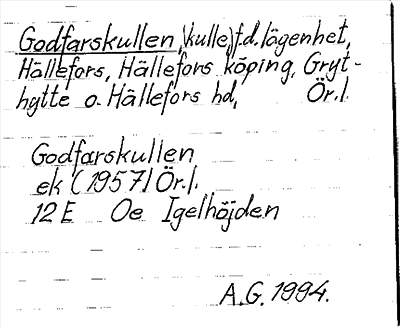 Godfarskullen, (kulle) f.d. lägenhet,
Hällefors, Hällefors köping, Gryt-
hytte o. Hällefors hd, Ör.l.
Godfarskullen
ek (1957) Ör.l.
12 E Oe Igelhöjden
A.G. 1994.